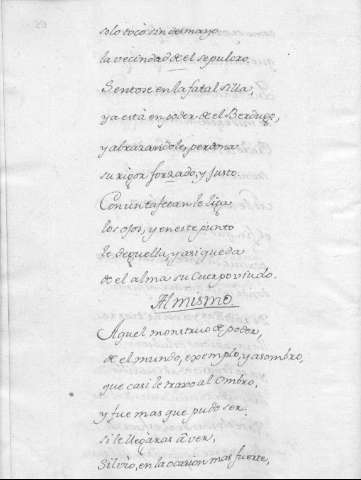 solo tocò sin desmayo
la vecindad de el sepulcro.
Sentose en la fatal silla,
y a està en poder de el Berdugo,
y abrazandole, perdona
su rigor forzado, y justo
Con un tafetan le liga
los ojos, y en este punto
le deguella, y asi queda
de el alma su cuerpo viudo.
Al mismo.
Aquel monstruo de poder,
de el mundo, exemplo, y asombro,
que casi le traxo al ombro,
y fue mas que pudo ser,
si le llegàras à ver,
Silvio, en la ocasion mas fuerte,